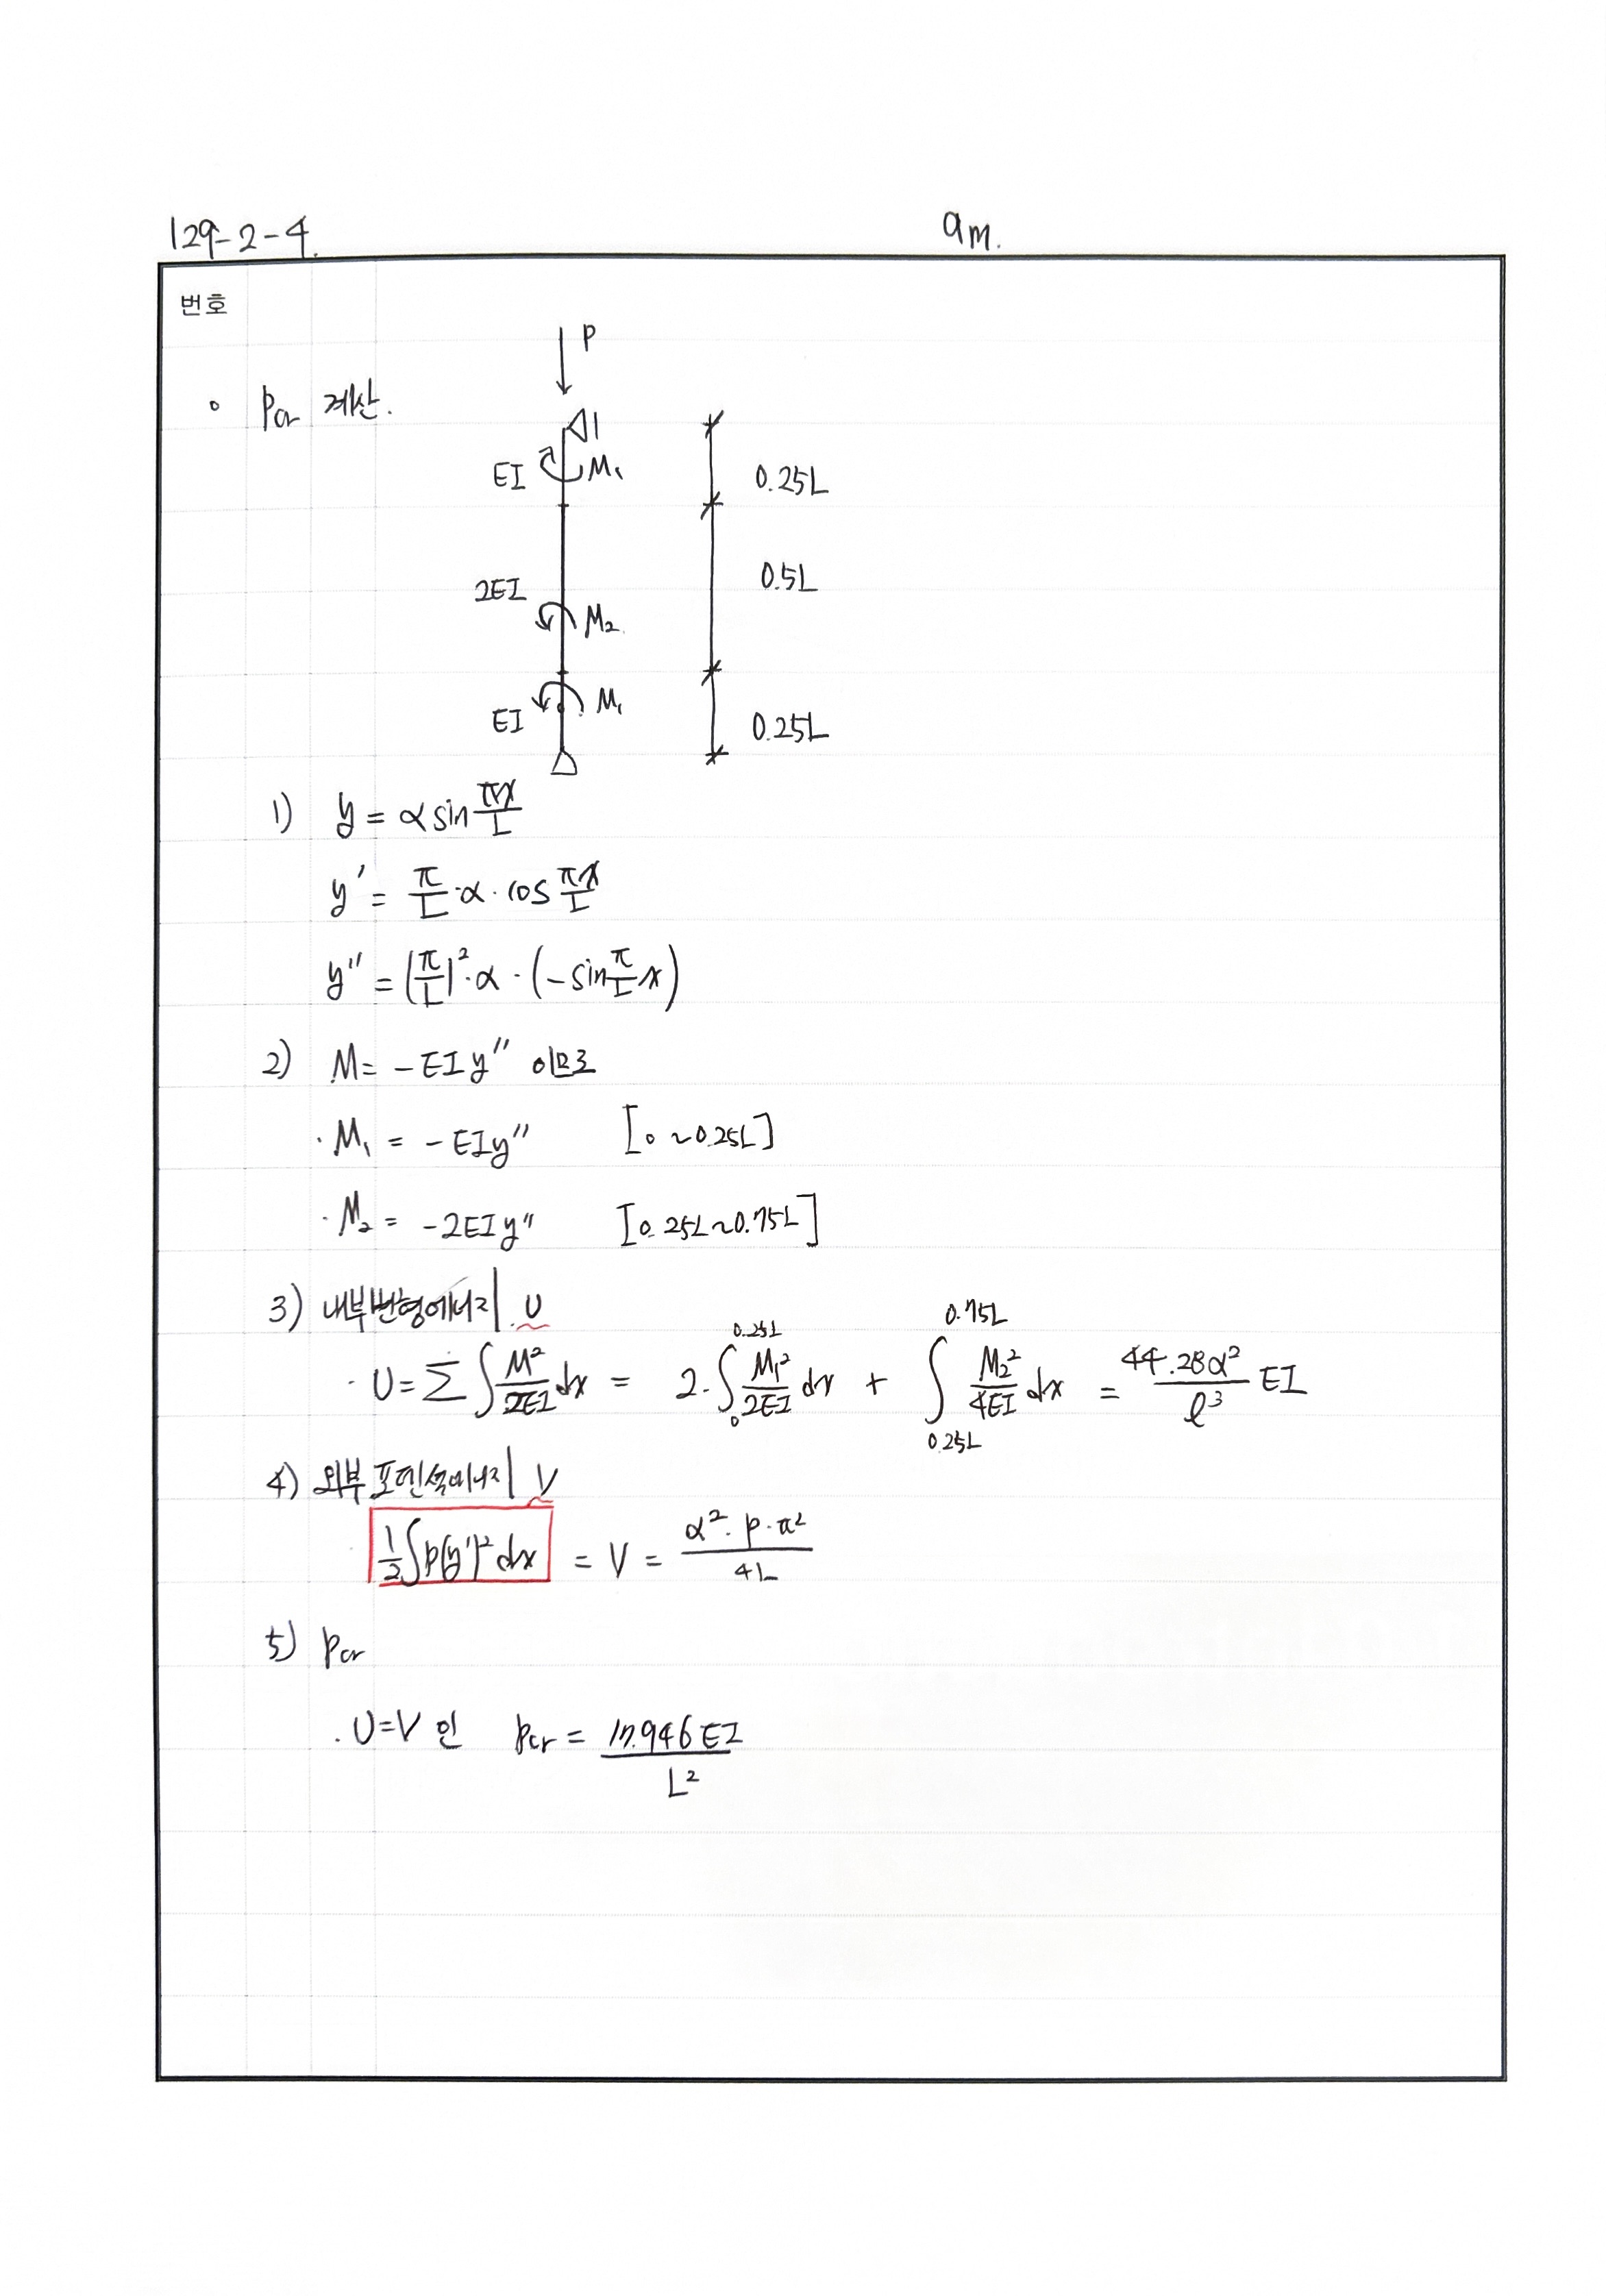 129-2-4.
9m.
번호
P
∘ Pcr 계산.
EI M₁ 0.25L
2EI 0.5L
M₂
EI M₁ 0.25L
1) y = α sin πx/L
y' = π/L · α · cos πx/L
y'' = (π/L)² · α · (-sin π/L x)
2) M = -EIy'' 이므로
· M₁ = -EIy'' [0 ~ 0.25L]
· M₂ = -2EIy'' [0.25L ~ 0.75L]
3) 내부변형에너지 U
· U = Σ∫ M²/2EI dx = 2·∫₀^0.25L M₁²/2EI dx + ∫_0.25L^0.75L M₂²/4EI dx = 44.28α²/ℓ³ EI
4) 외부 포텐셜에너지 V
½∫P(y')² dx = V = α²·P·π²/4L
5) Pcr
· U=V 인 Pcr = 17.946EI/L²